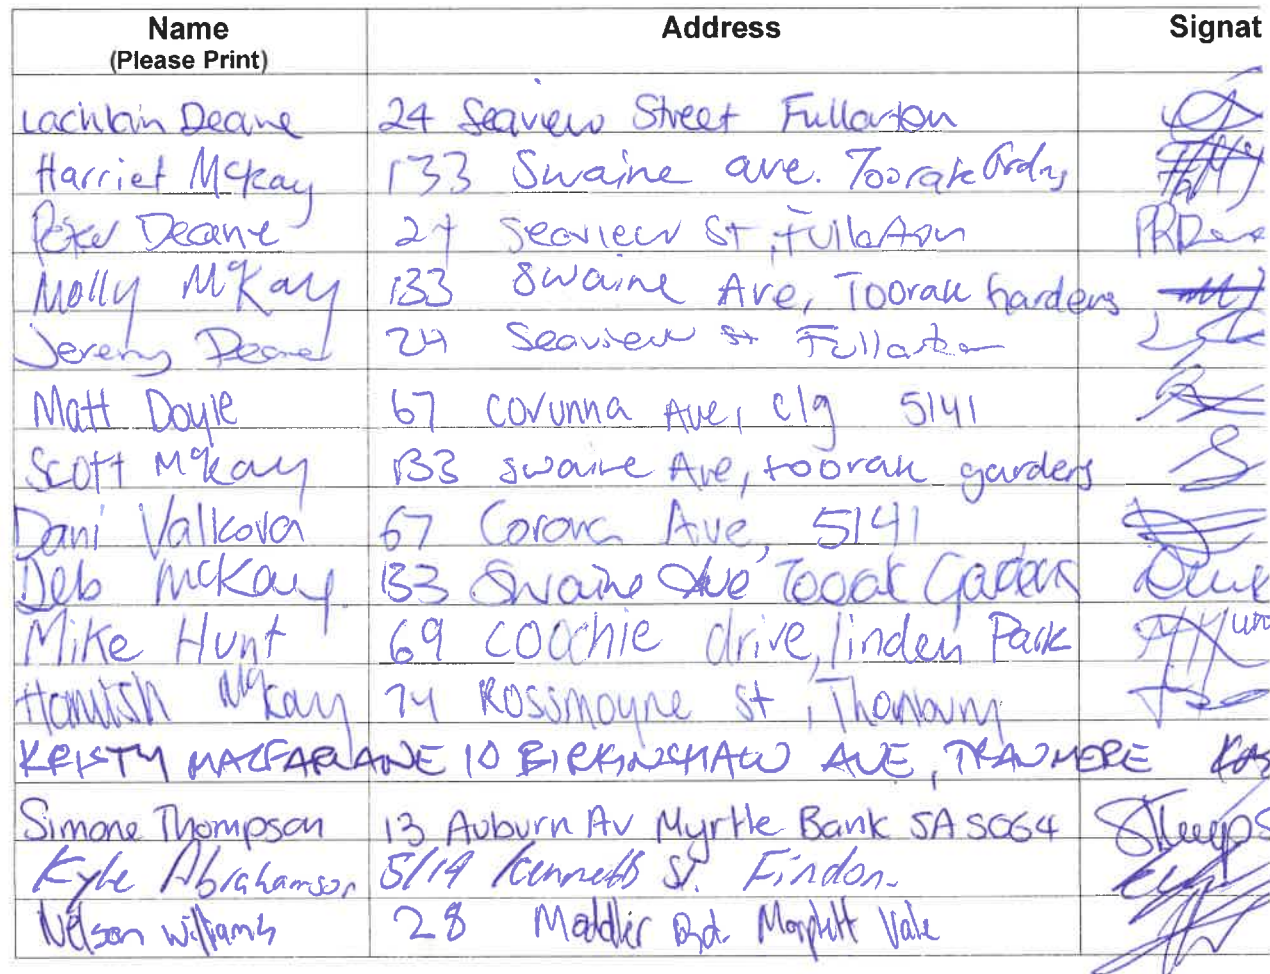 Name Address Signat
(Please Print)
Lachlain Deane 24 Seaview Street Fullarton
Harriet McKay 133 Swaine ave. Toorak Grdns
Peter Deane 24 Seaview St, Fullarton
Molly McKay 133 Swaine Ave, Toorak Gardens
Jeremy Deane 24 Seaview St Fullarton
Matt Doyle 67 Corunna Ave, clg 5141
Scott McKay 133 swaine Ave, toorak gardens
Dani Valkova 67 Corona Ave, 5141
Deb McKay 133 Swaine Ave Toorak Gardens
Mike Hunt 69 Coochie drive, linden Park
Hamish McKay 74 Rossmoyne St,
KRISTY MACFARLANE 10 BIRKINSHAW AVE, TRANMERE
Simone Thompson 13 Auburn Av Myrtle Bank SA 5064
Kyle Abrahamson 5/19 Kennett St. Findon.
Nelson Williams 28 Vale